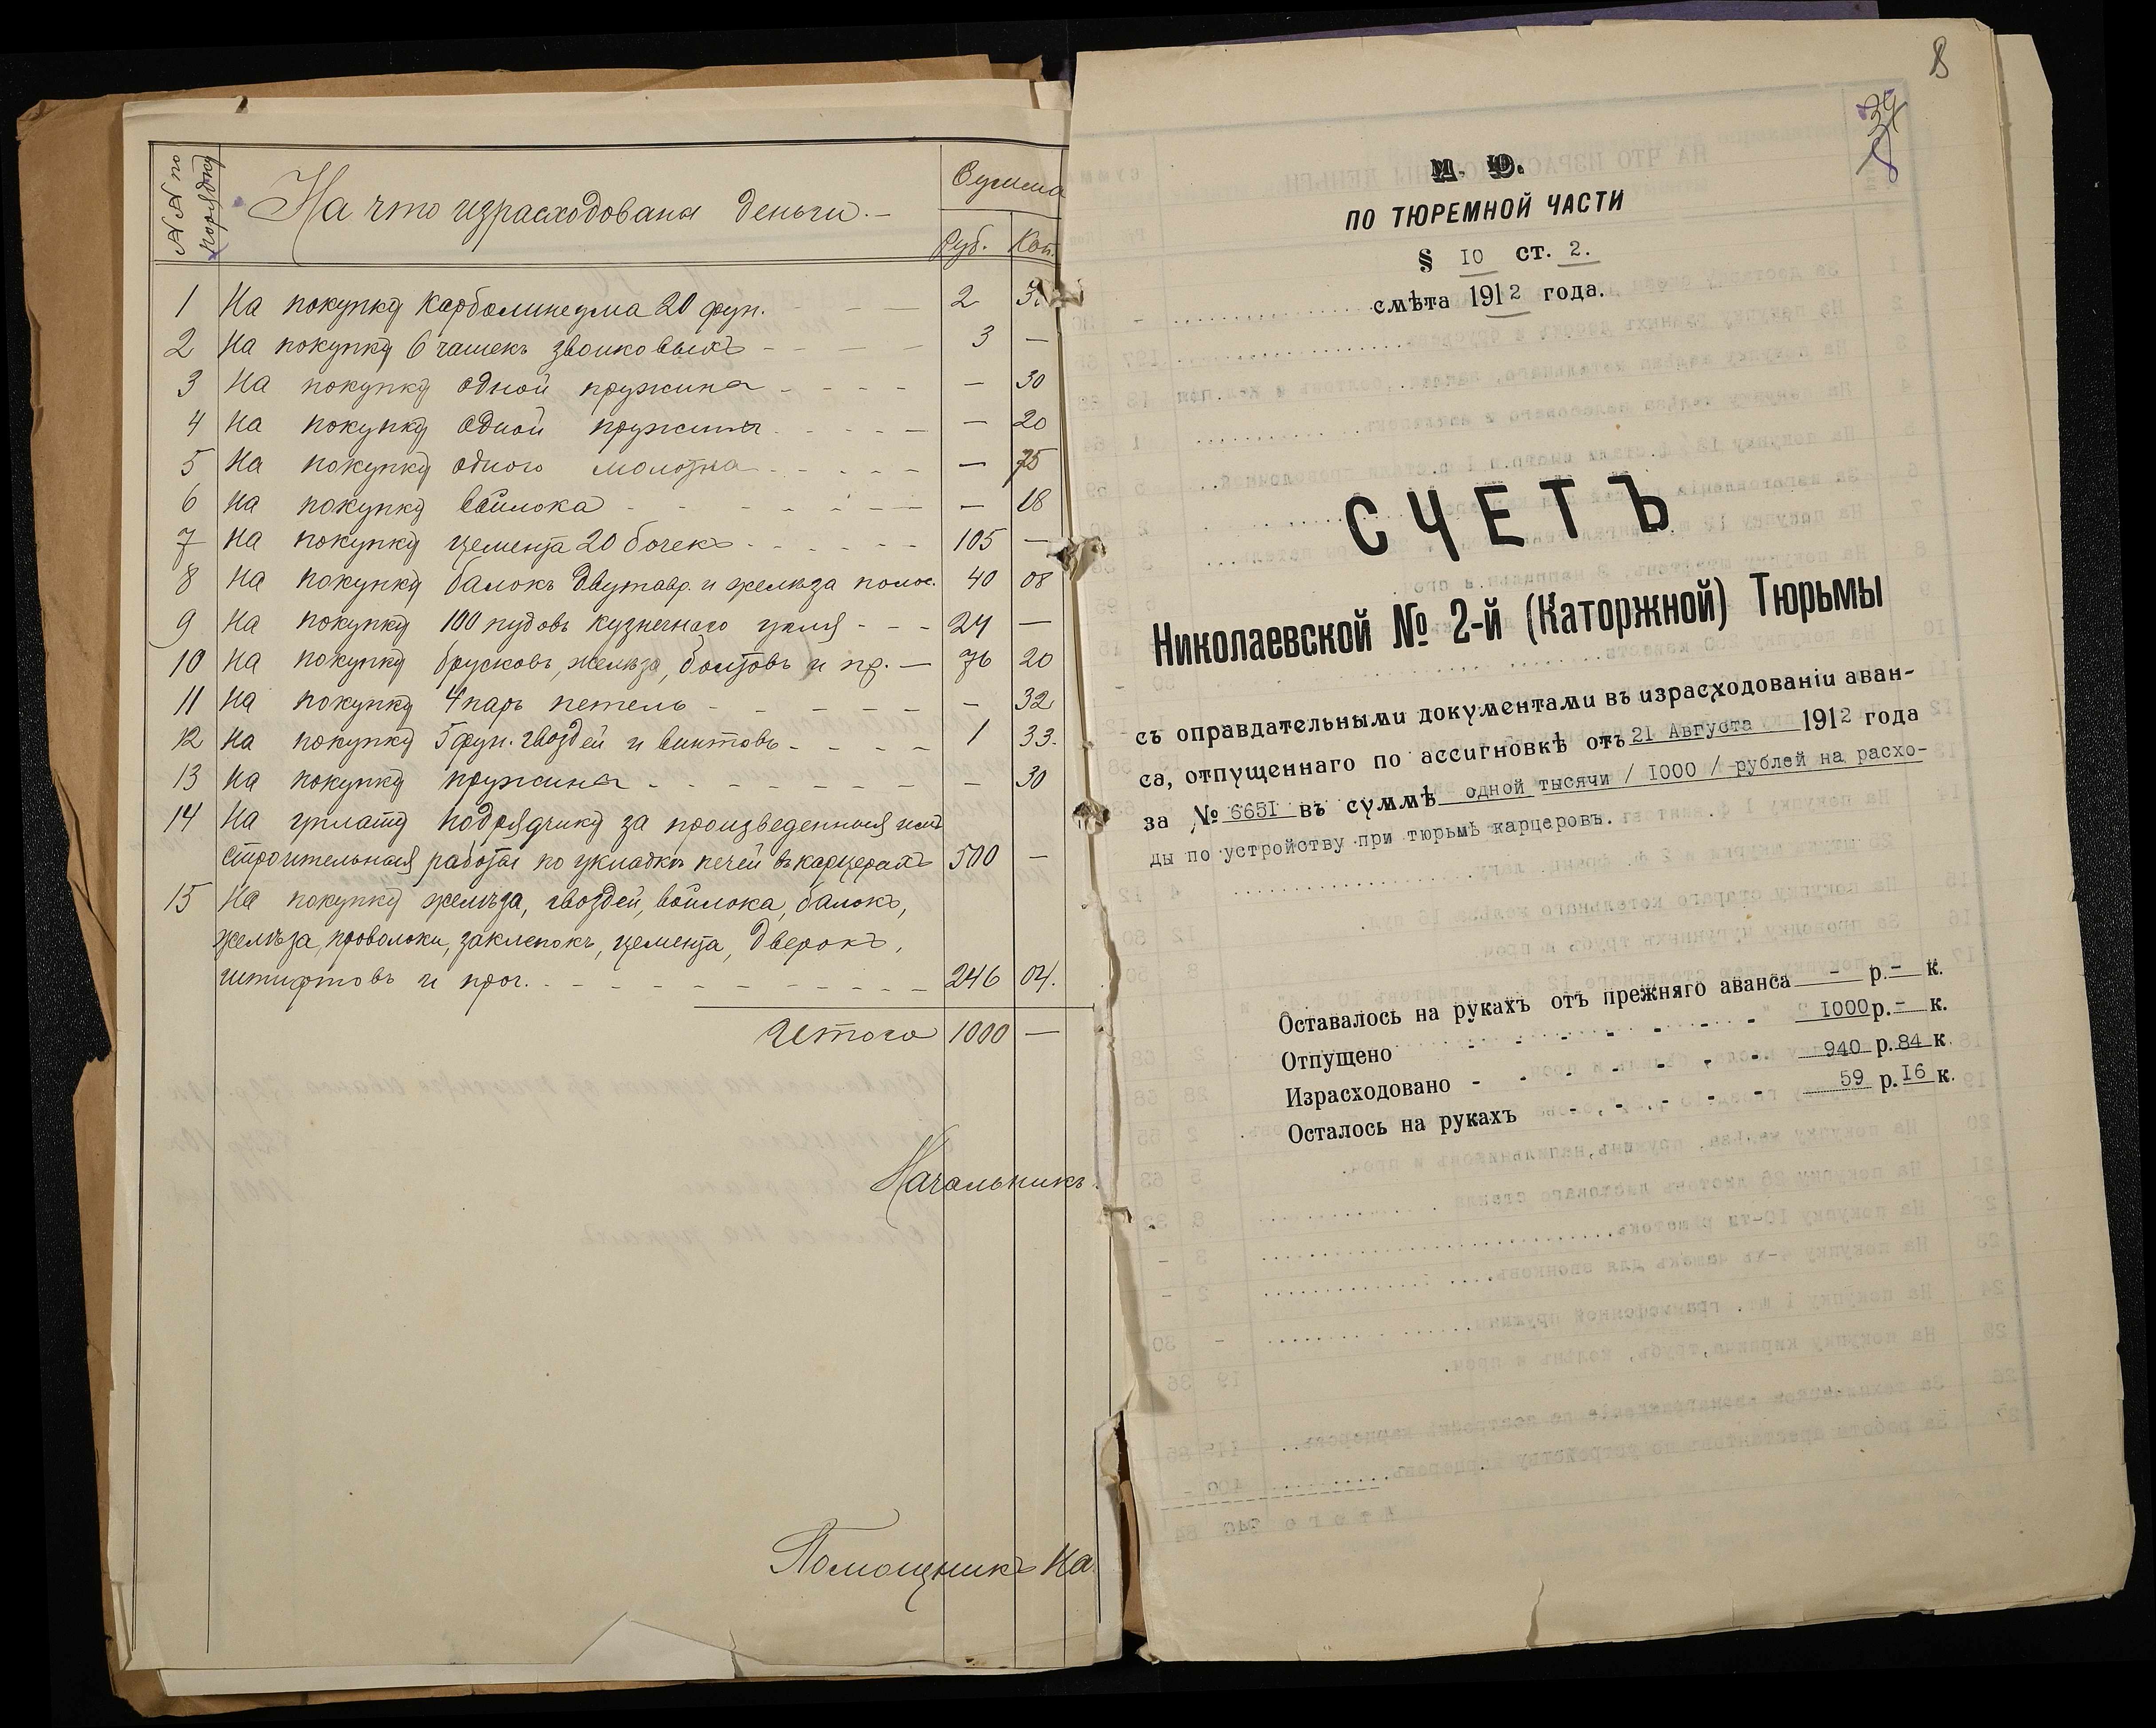 №№ по порядку
На что израсходованы деньги.-
Сумма
Руб. Коп.
1 На покупку карболинеума 20 фун. - - - 2
2 На покупку 6 чашекъ звонковыхъ - - - - 3 —
3 На покупку одной пружины - - - - — 30
4 На покупку одной пружины - - - - - — 20
5 На покупку одного молотка - - - - - — 75
6 На покупку войлока - - - - - - - — 18
7 На покупку цемента 20 бочекъ - - - - - - 105 —
8 На покупку балокъ двутавр. и желѣза полос. 40 08
9 На покупку 100 пудовъ кузнечнаго угля - - - 24 —
10 На покупку брусковъ, желѣза, болтовъ и пр. — 76 20
11 На покупку 4 паръ петель - - - - - - - 32
12 На покупку 5 фун. гвоздей и винтовъ - - - - 1 33.
13 На покупку пружины - - - - - - - - 30
14 На уплату подрядчику за произведенныя имъ
строительныя работы по укладкѣ печей въ карцерахъ 500 —
15 На покупку желѣза, гвоздей, войлока, балокъ,
желѣза, проволоки, заклепокъ, цемента, дверокъ,
штифтовъ и проч. - - - - - - - - - - 246 04.
Итого 1000 —
Начальникъ
Помощникъ На
8
М. Ю.
ПО ТЮРЕМНОЙ ЧАСТИ
§ 10 ст. 2.
смѣта 1912 года.
СЧЕТЪ
Николаевской № 2-й (Каторжной) Тюрьмы
съ оправдательными документами въ израсходованіи аван-
са, отпущеннаго по ассигновкѣ отъ 21 Августа 1912 года
за № 6651 въ суммѣ одной тысячи / 1000 / рублей на расхо-
ды по устройству при тюрьмѣ карцеровъ.
Оставалось на рукахъ отъ прежняго аванса - р. - к.
Отпущено - - - - - - - 1000 р. - к.
Израсходовано - - - - - , - 940 р. 84 к.
Осталось на рукахъ - - - - - 59 р. 16 к.